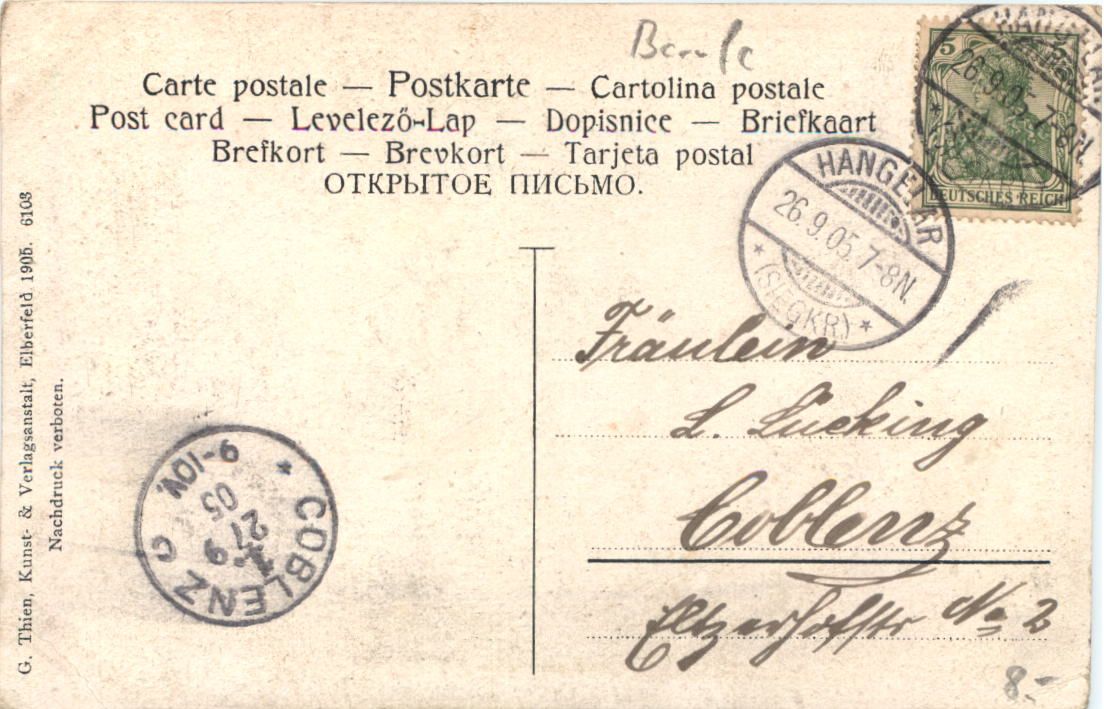 Berufe
Carte postale — Postkarte — Cartolina postale
Post card — Levelező-Lap — Dopisnice — Briefkaart
Brefkort — Brevkort — Tarjeta postal
ОТКРЫТОЕ ПИСЬМО.
5 5
DEUTSCHES REICH
26.9.05 7-8N.
HANGELAR
26.9.05 7-8N.
* (SIEGKR) *
Fräulein
L. Lücking
Coblenz
Eltzerhofstr No 2
8.-
* COBLENZ C
27 9 05
9-10N.
G. Thien, Kunst- & Verlagsanstalt, Elberfeld 1905. 6103
Nachdruck verboten.